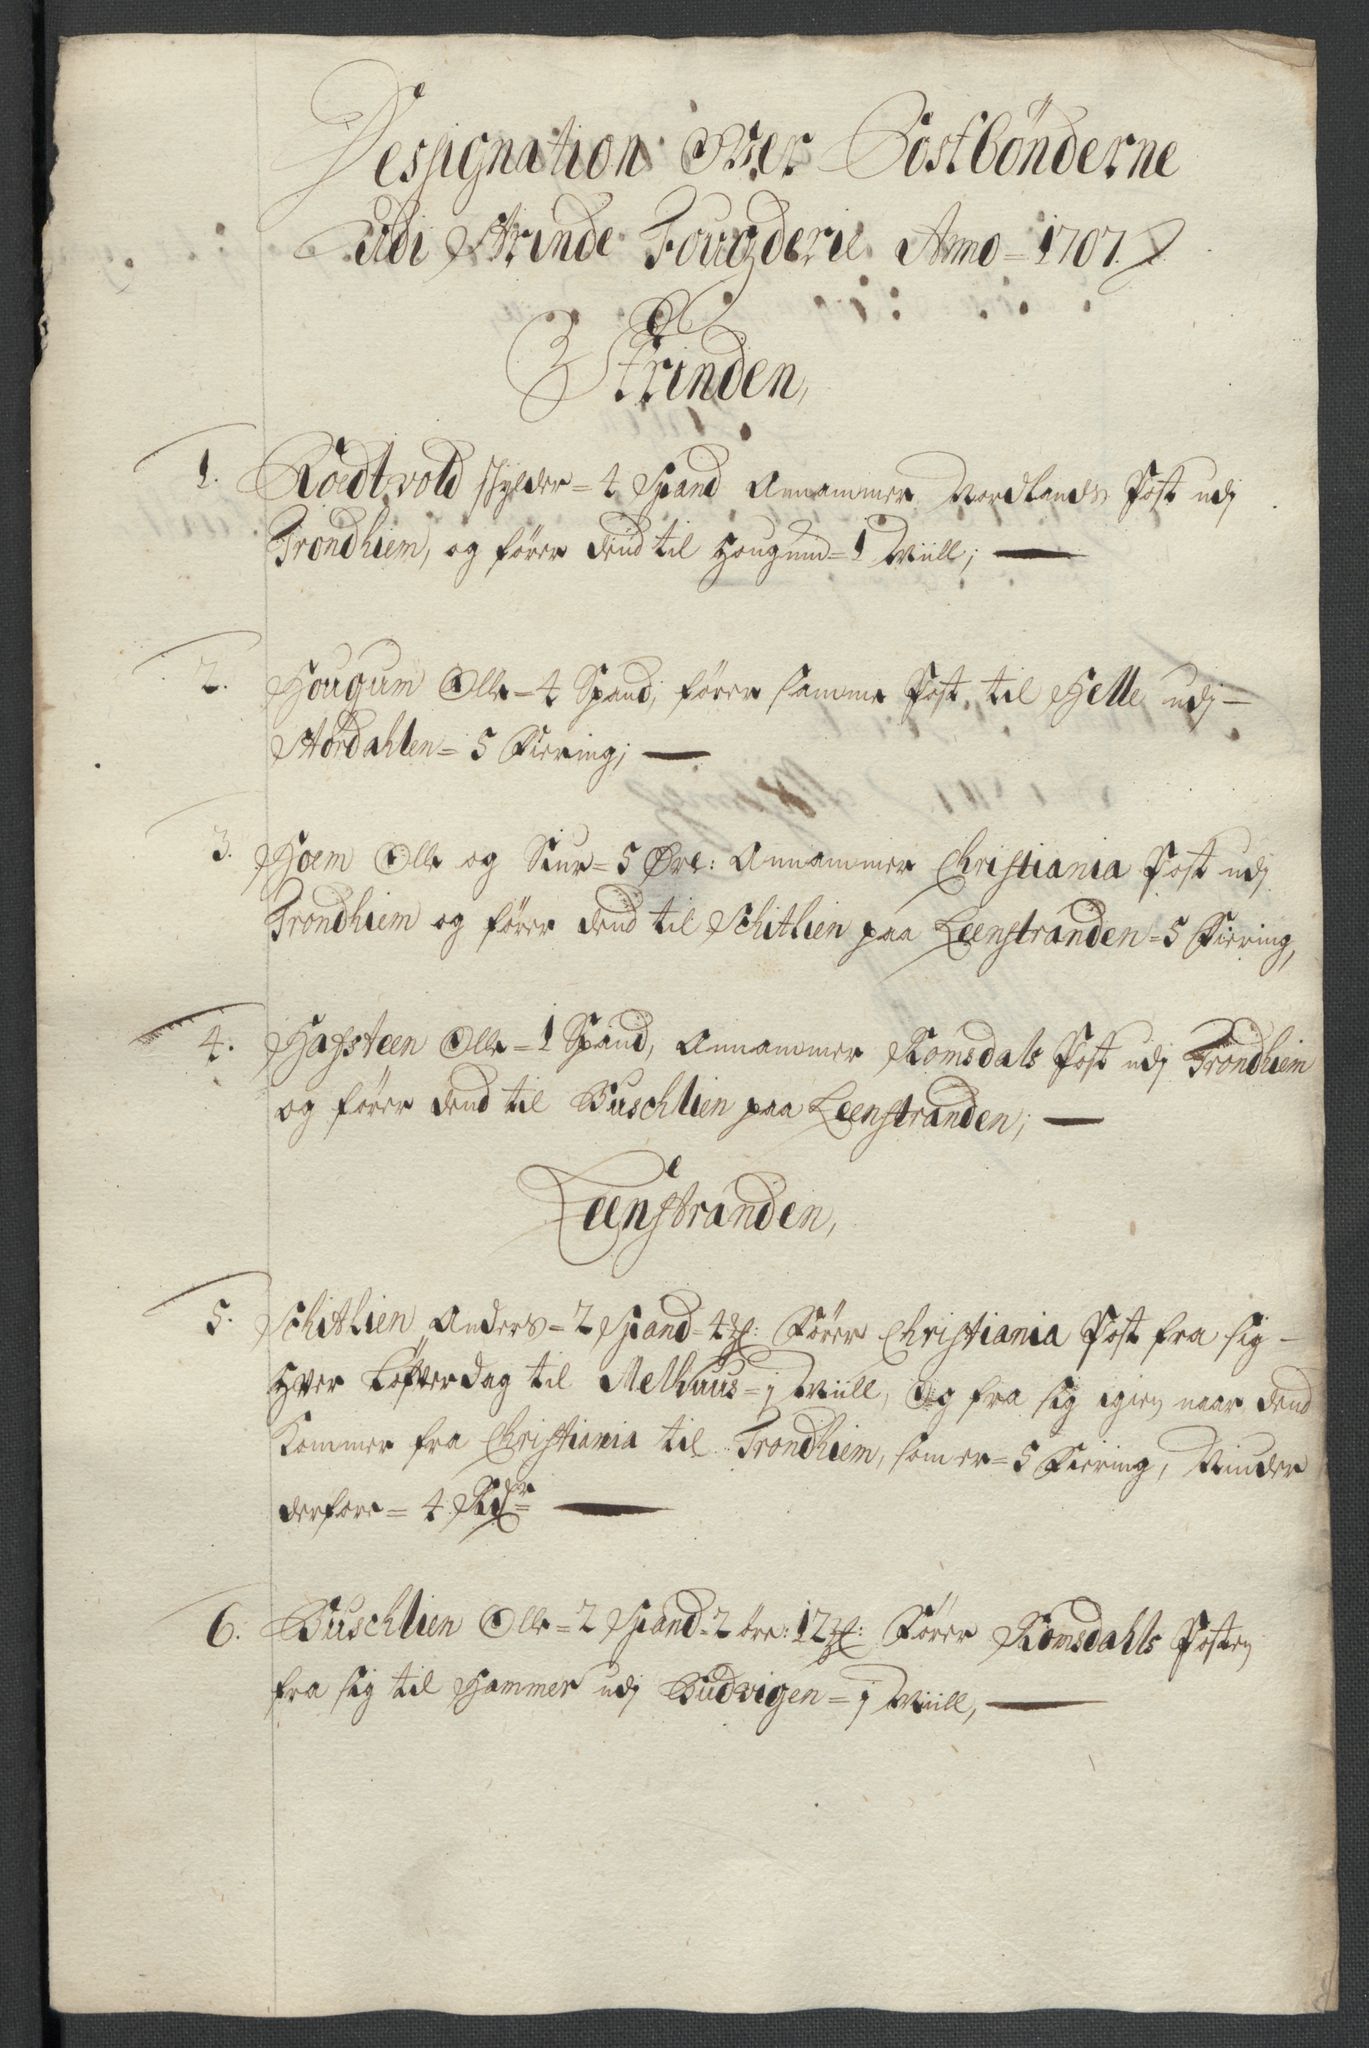 Designation Over Postbönderne
Udi Strinde Fougderie Anno = 1707
Strinden,
1. Roedtvold skylder = 4 Spand Annammer Nordlands Post udj
Trondhiem, og fører dend til Hougum = 1 Miill;
2. Hougum Olle = 4 Spand, fører samme Post til Helle udj
Stördahlen = 5 Fiering;
3. Hoem Olle og Siur = 5 Øre: Annammer Christiania Post udj
Trondhiem og fører dend til Schitlien paa Leenstranden = 5 Fiering,
4. Hafsteen Olle = 1 Spand, Annammer Romsdals Post udj Trondhiem
og fører dend til Buschlien paa Leenstranden;
Leenstranden,
5. Schitlien Anders = 2 Spand = 4 Fører Christiania Post fra sig
Hver Löfverdag til Melhuus = j Miill, Og fra sig igien naar dend
kommer fra Christiania til Trondhiem, som er = 5 Fiering, Niuder
derfore = 4 Rdr
6. Buschlien Olle = 2 Spand = 2 öre: 12 Fører Romsdahls Posten
fra sig til Hammer udj Budvigen = j Miill,